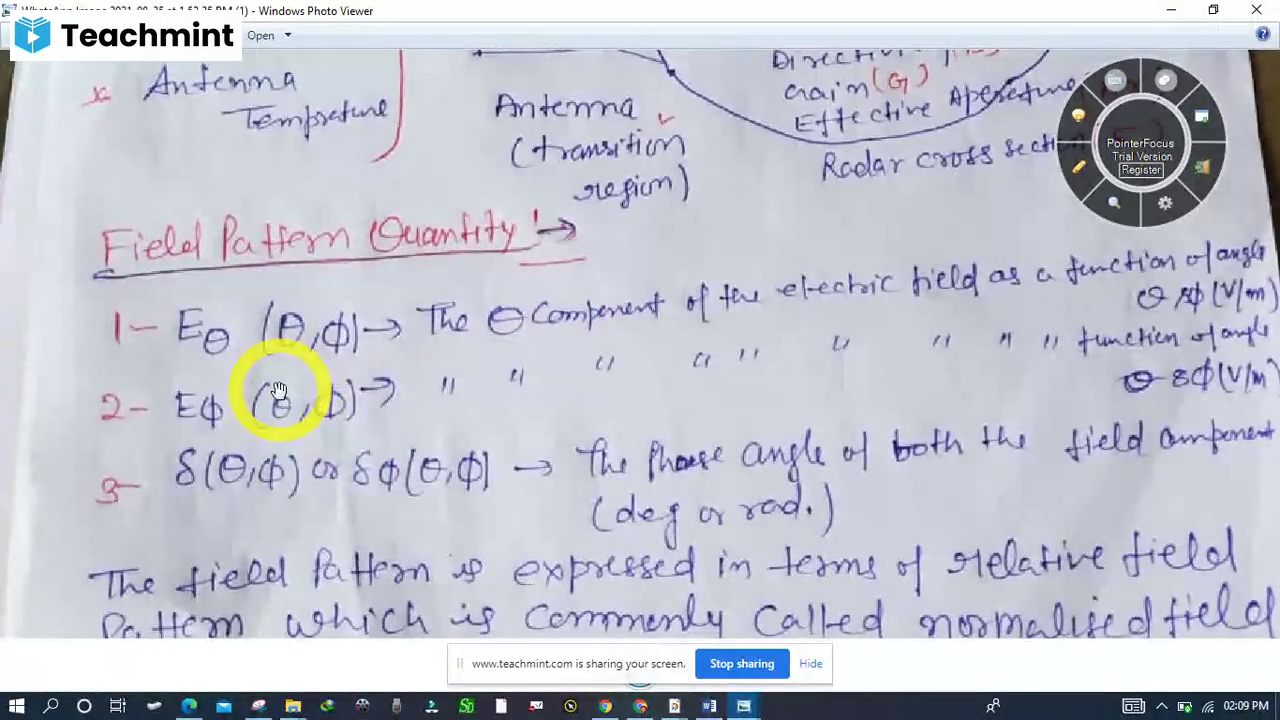 WhatsApp Image 2021-08-25 at 1.52.25 PM (1) - Windows Photo Viewer
Teachmint
Open
x Antenna
Temprature
Antenna
(transition
region)
Gain (G)
Effective Aperature
Radar cross section
PointerFocus
Trial Version
Register
Field Pattern Quantity →
1- Eθ (θ,ϕ) → The θ component of the electric field as a function of angle
θ & ϕ (V/m)
2- Eϕ (θ,ϕ) → " " " " " " " " " function of angle
θ & ϕ (V/m)
3- δ(θ,ϕ) or δϕ(θ,ϕ) → The phase angle of both the field component
(deg or rad.)
The field Pattern is expressed in terms of relative field
Pattern which is commonly called normalised field
www.teachmint.com is sharing your screen.
Stop sharing
Hide
02:09 PM